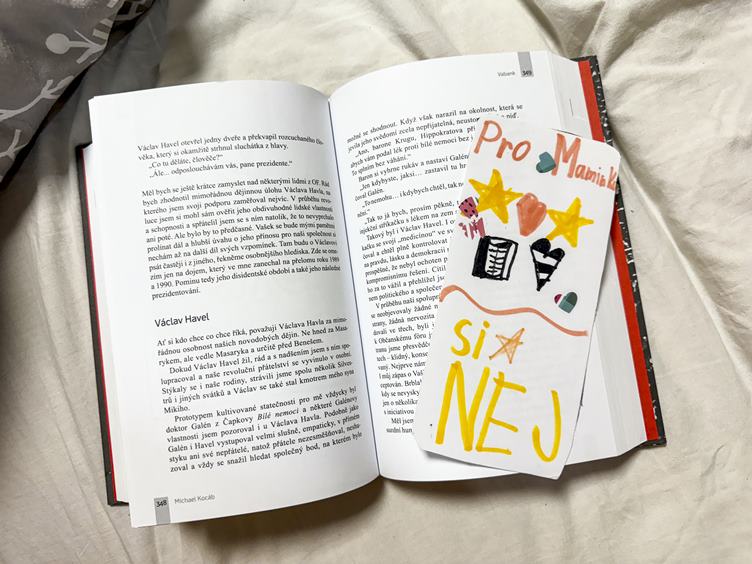 Václav Havel otevřel jedny dveře a překvapil rozcuchaného člo-
věka, který si okamžitě strhnul sluchátka z hlavy.
„Co tu děláte, člověče?“
„Ále... odposlouchávám vás, pane prezidente.“
Měl bych se ještě krátce zamyslet nad některými lidmi z OF. Rád
bych zhodnotil mimořádnou dějinnou úlohu Václava Havla, na
kterého jsem svoji podporu zaměřoval nejvíc. V průběhu revo-
luce jsem si mohl sám ověřit jeho obdivuhodné lidské vlastnosti
a schopnosti a spřátelil jsem se s ním natolik, že to nevyprchalo
ani poté. Ale bylo to předčasné. Vašek se bude mými paměťmi
prolínat dál a hlubší úvahu o jeho přínosu pro naši společnost si
nechám až na další díl svých vzpomínek. Tam budu o Václavovi
psát častěji i z jiného, řekněme osobnějšího hlediska. Zde se omezím
jen na dojem, který ve mne zanechal na přelomu roku 1989
a 1990. Pominu tedy jeho disidentské období a také jeho následné
prezidentování.
Václav Havel
Ať si kdo chce co chce říká, považuji Václava Havla za mimo-
řádnou osobnost našich novodobých dějin. Ne hned za Masa-
rykem, ale vedle Masaryka a určitě před Benešem.
Dokud Václav Havel žil, rád a s nadšením jsem s ním spo-
lupracoval a naše revoluční přátelství se vyvinulo v osobní.
Stýkaly se i naše rodiny, strávili jsme spolu několik Silves-
trů i jiných svátků a Václav se také stal kmotrem mého syna
Mikiho.
Prototypem kultivované statečnosti pro mě vždycky byl
doktor Galén z Čapkovy Bílé nemoci a některé Galénovy
vlastnosti jsem pozoroval i u Václava Havla. Podobně jako
Galén i Havel vystupoval velmi slušně, empaticky, v přímém
styku ani své nepřátele, natož přátele nezesměšňoval, neurá:
zoval a vždy se snažil hledat společný bod, na kterém bylo
348 Michael Kocáb
Vabank 349
možné se shodnout. Když však narazil na okolnost, která se
jevila jeho svědomí zcela nepřijatelná,
„Ano, barone Krugu, Hippokratova
abych vám podal lék proti bílé nemoci bez
To splním bez váhání.“
Baron si vyhrne rukáv a nastaví Galén
„Jen kdybyste, jaksi... zastavil
čoval Galén.
„To nemohu... i kdybych chtěl, tak
„Tak to já bych, prosím pěkně,
injekční stříkačku s lékem na zem
Takový byl i Václav Havel. I
kačku se svojí „medicínou“ ve
a chtěl plně kontrolovat
na pravdu, lásku a demokracii
prospěšné, že nebyl ochoten
kompromisnímu řešení. Cítil
ho za to vážil a přehlížel
nem politického a společen
V průběhu naší
se neobjevovaly žádné
strany, žádná nervozita
dávali ve třech, byli
k Občanskému fóru
tranu jsme přesvědč
tech – klidný,
Nejprve
můj zápas o
ceptován. Brbla
ky se nevysky
a jen o několik
s iniciativou
Měl jsem
surdní hun
Pro Maminku
si
NEJ